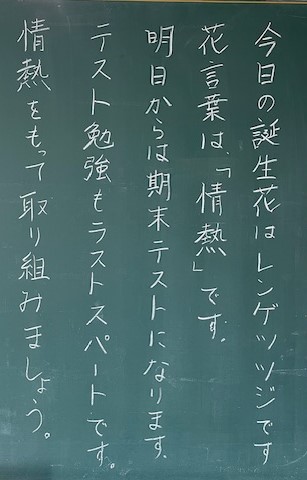 今日の誕生花はレンゲツツジです
花言葉は、「情熱」です。
明日からは期末テストになります.
テスト勉強もラストスパートです。
情熱をもって取り組みましょう。